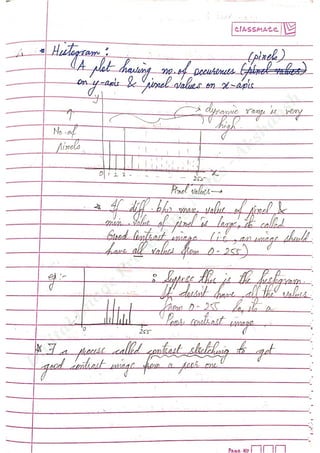 classmate
* Histogram :
(pixels)
A plot having no. of occurences (pixel values)
on y-axis & pixel values on x-axis
y
→ dynamic range is very
high
No. of
pixels
0 1 2
255
x
Pixel values →
* If diff. b/w max. value of pixel &
min. value of pixel is large, its called
Good Contrast image (i.e., an image should
have all values from 0-255)
eg :-
: Suppose this is the histogram.
It doesn't have all the values
from 0-255. So, its a
Poor contrast image
0
255
* ∃ a process called contrast stretching to get
good contrast image from a poor one
PAGE NO